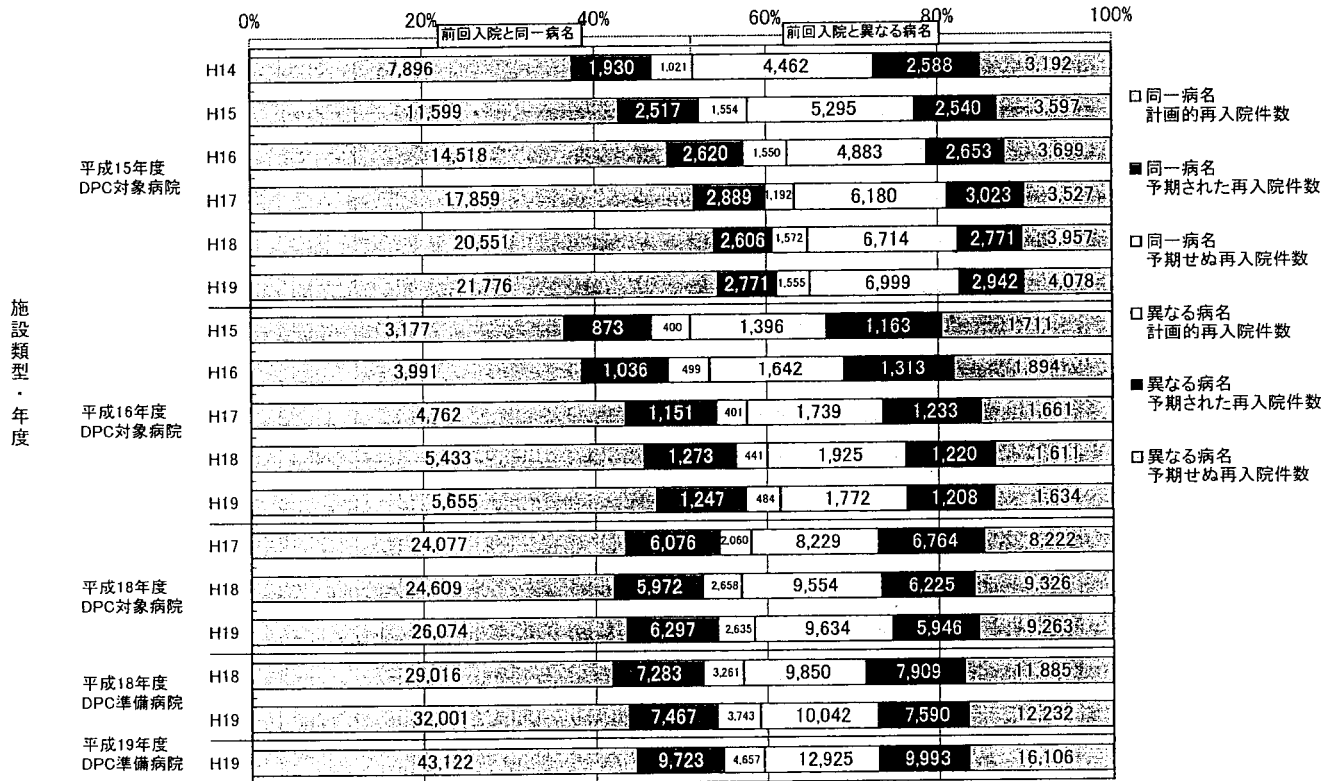 0% 20% 40% 60% 80% 100%
前回入院と同一病名 前回入院と異なる病名
施設類型・年度
平成15年度
DPC対象病院
H14 7,896 1,930 1,021 4,462 2,588 3,192
H15 11,599 2,517 1,554 5,295 2,540 3,597
H16 14,518 2,620 1,550 4,883 2,653 3,699
H17 17,859 2,889 1,192 6,180 3,023 3,527
H18 20,551 2,606 1,572 6,714 2,771 3,957
H19 21,776 2,771 1,555 6,999 2,942 4,078
平成16年度
DPC対象病院
H15 3,177 873 400 1,396 1,163 1,711
H16 3,991 1,036 499 1,642 1,313 1,894
H17 4,762 1,151 401 1,739 1,233 1,661
H18 5,433 1,273 441 1,925 1,220 1,611
H19 5,655 1,247 484 1,772 1,208 1,634
平成18年度
DPC対象病院
H17 24,077 6,076 2,060 8,229 6,764 8,222
H18 24,609 5,972 2,658 9,554 6,225 9,326
H19 26,074 6,297 2,635 9,634 5,946 9,263
平成18年度
DPC準備病院
H18 29,016 7,283 3,261 9,850 7,909 11,885
H19 32,001 7,467 3,743 10,042 7,590 12,232
平成19年度
DPC準備病院
H19 43,122 9,723 4,657 12,925 9,993 16,106
同一病名
計画的再入院件数
同一病名
予期された再入院件数
同一病名
予期せぬ再入院件数
異なる病名
計画的再入院件数
異なる病名
予期された再入院件数
異なる病名
予期せぬ再入院件数